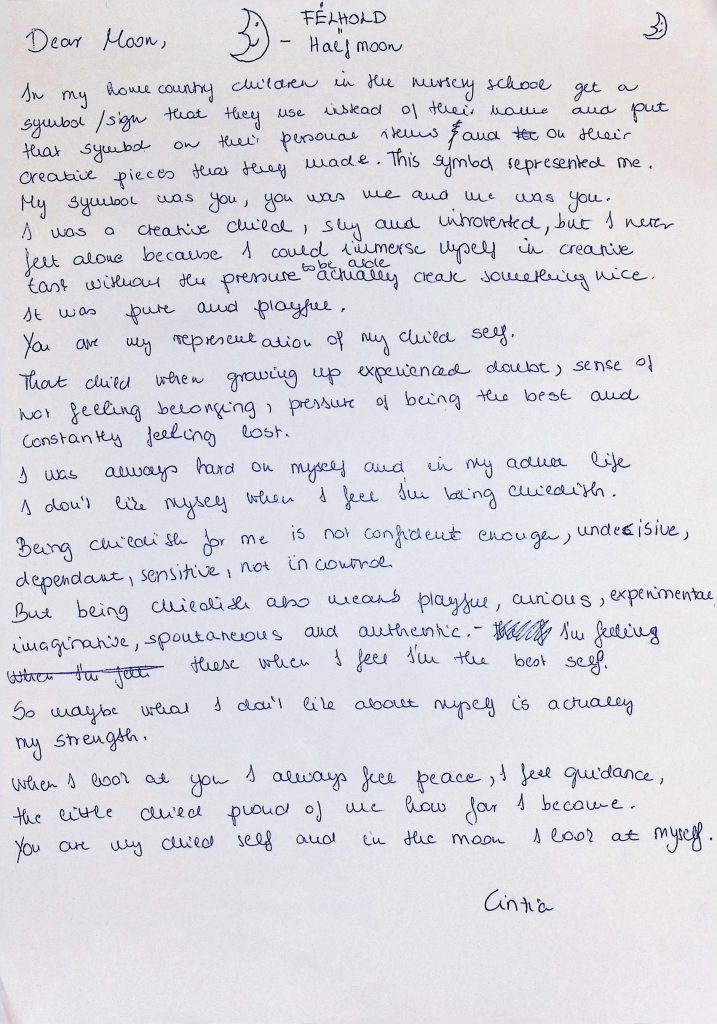 Dear Moon,
FÉLHOLD
- Half moon
In my home country children in the nursery school get a
symbol/sign that they use instead of their name and put
that symbol on their personal items and on their
creative pieces that they made. This symbol represented me.
My symbol was you, you was me and me was you.
I was a creative child, shy and introverted, but I never
felt alone because I could immerse myself in creative
tast without the pressure to be able actually creat something nice.
It was pure and playful.
You are my representation of my child self.
That child when growing up experienced doubt, sense of
not feeling belonging, pressure of being the best and
constantly feeling lost.
I was always hard on myself and in my adult life
I don't like myself when I feel I'm being childish.
Being childish for me is not confident enough, undecisive,
dependant, sensitive, not in control.
But being childish also means playful, curious, experimental,
imaginative, spontaneous and authentic. - I'm feeling
when I'm felt these when I feel I'm the best self.
So maybe what I don't like about myself is actually
my strength.
When I look at you I always feel peace, I feel guidance,
the little child proud of me how far I become.
You are my child self and in the moon I look at myself.
Cintia